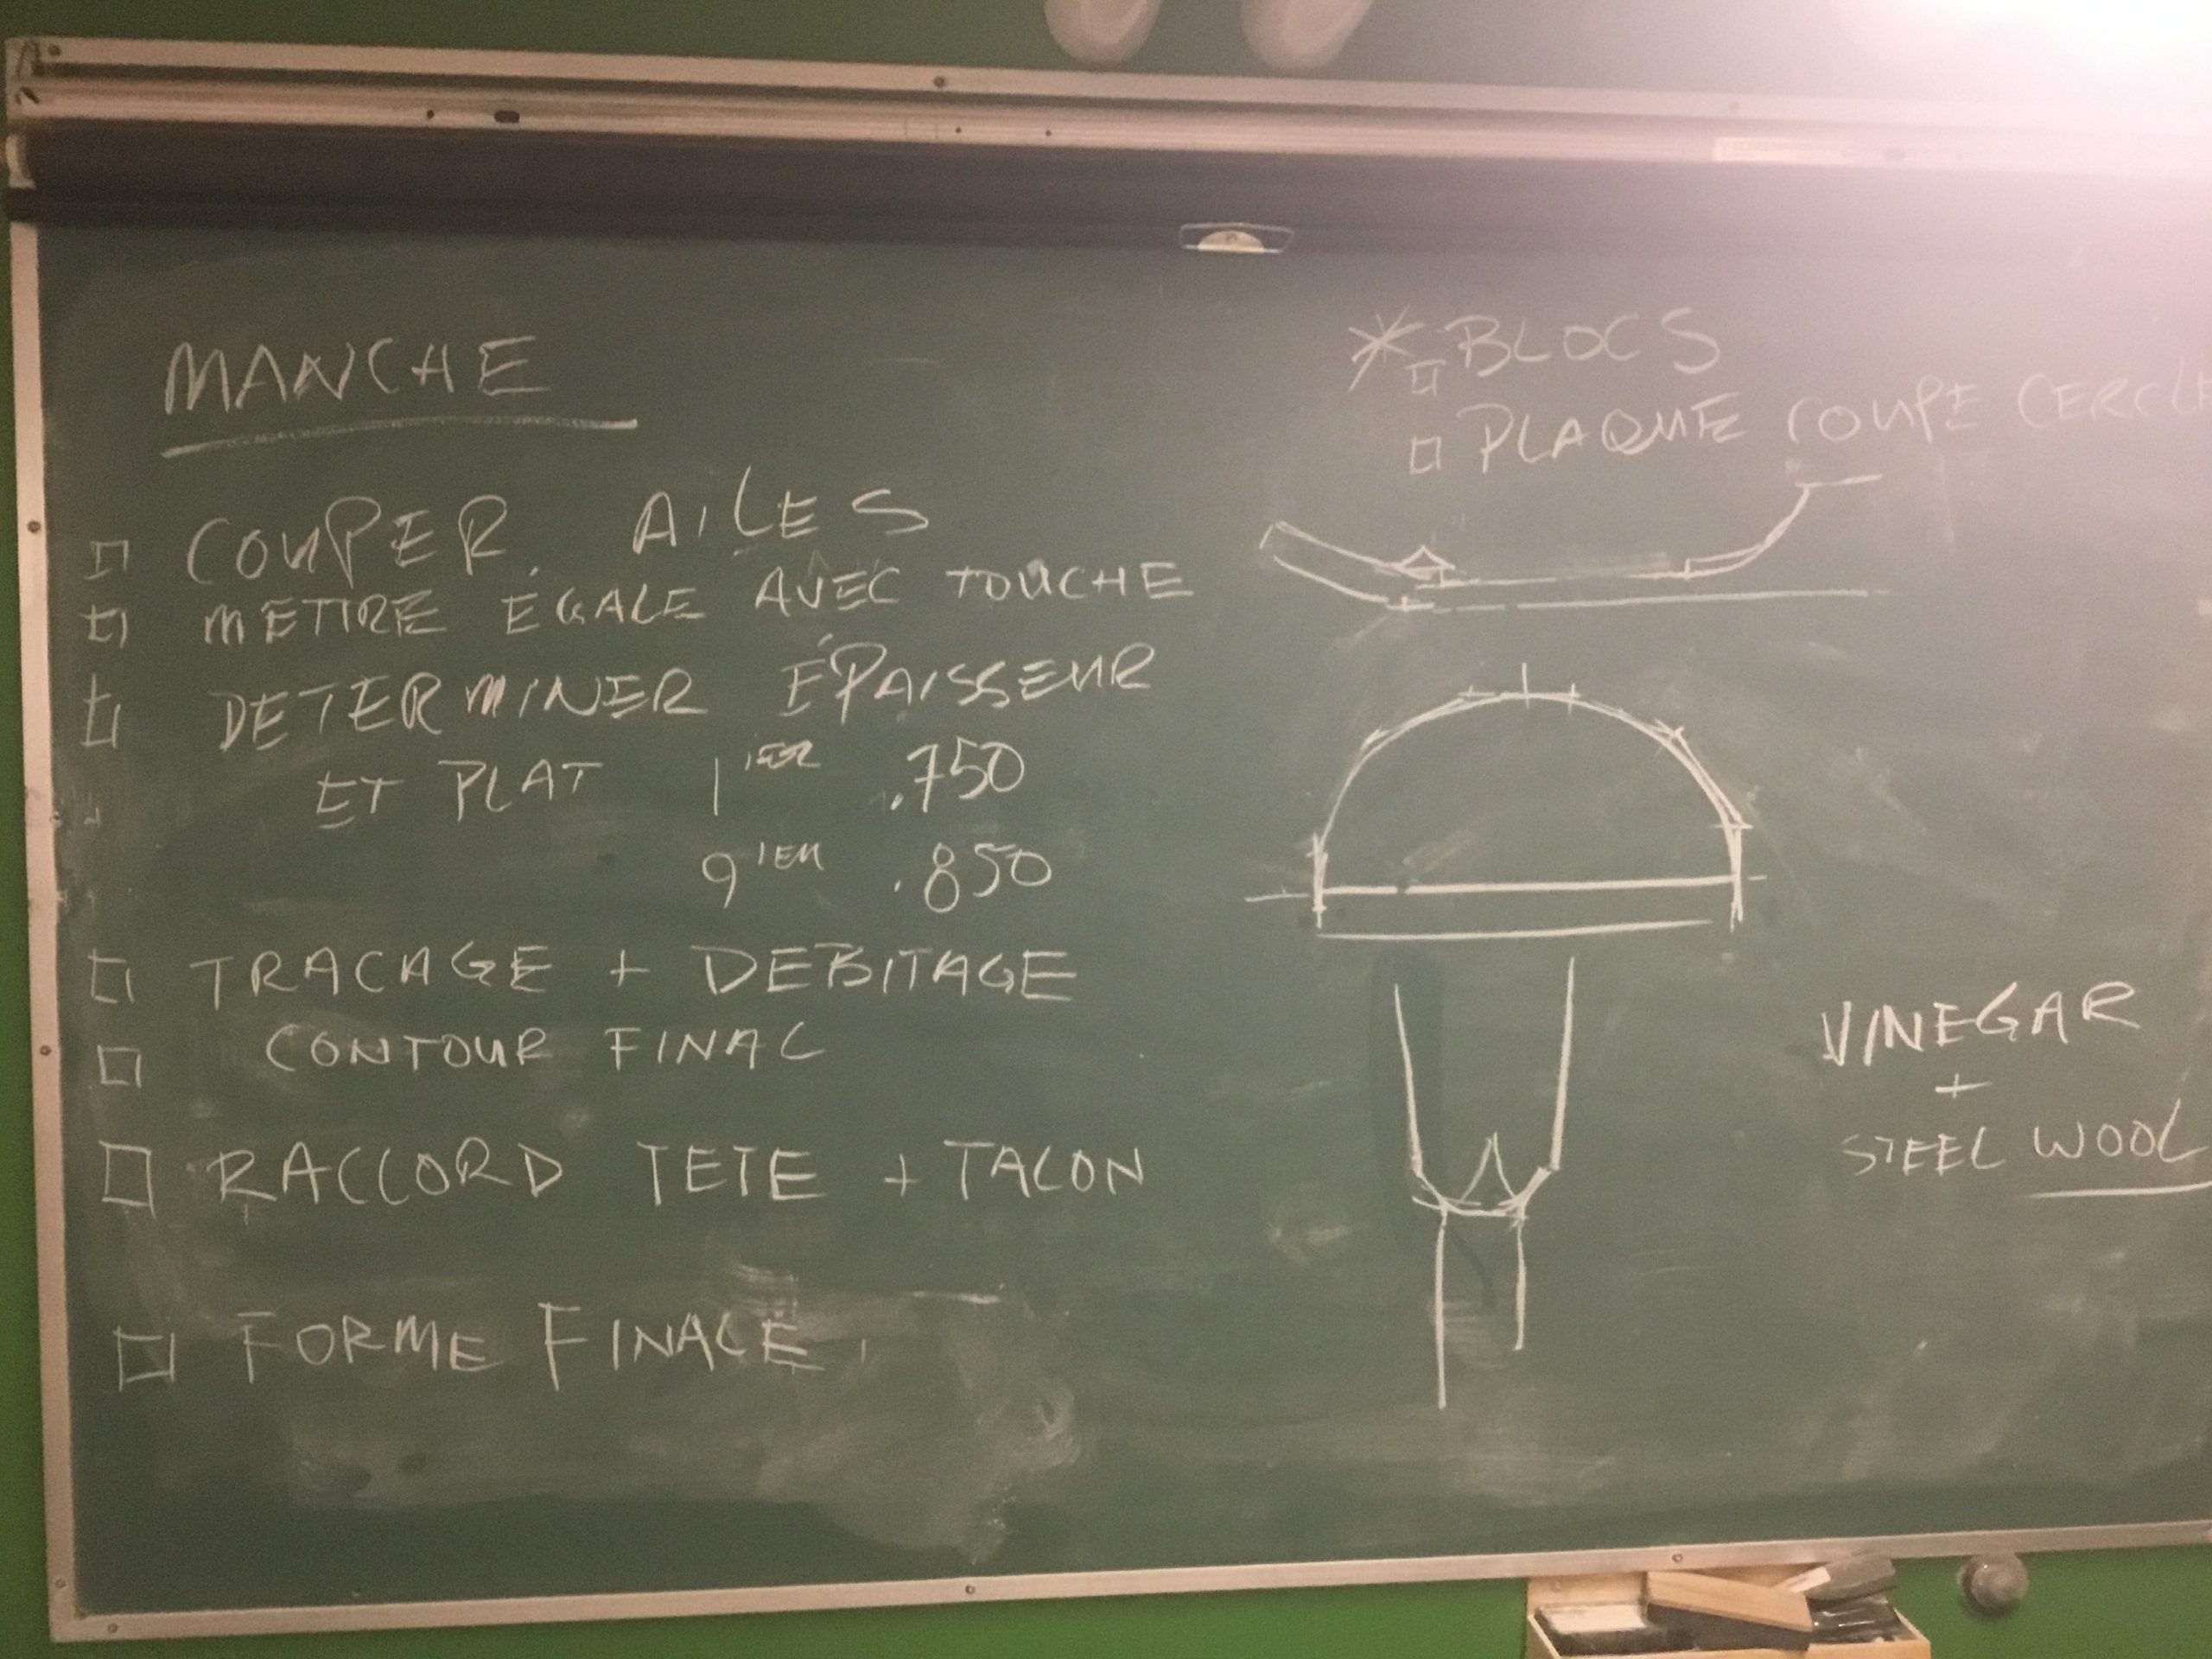 MANCHE
COUPER AILES
METTRE ÉGALE AVEC TOUCHE
DETERMINER ÉPAISSEUR
ET PLAT 1IER .750
9IEM .850
TRACAGE + DEBITAGE
CONTOUR FINAL
RACCORD TETE + TALON
FORME FINALE
* BLOCS
PLAQUE COUPE CERCLE
VINEGAR
+
STEEL WOOL